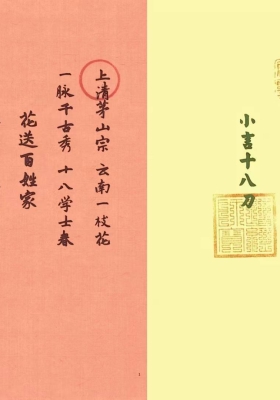 小言十八刀
上清茅山宗 云南一枝花
一脉千古秀 十八学士春
花送百姓家